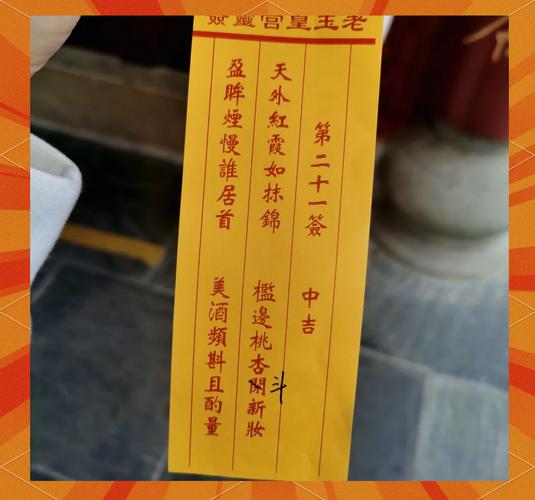 老玉皇宮靈簽
第二十一簽 中吉
天外紅霞如抹錦 檻邊桃杏斗新妝
盈眸煙慢誰居首 美酒頻斟且酌量